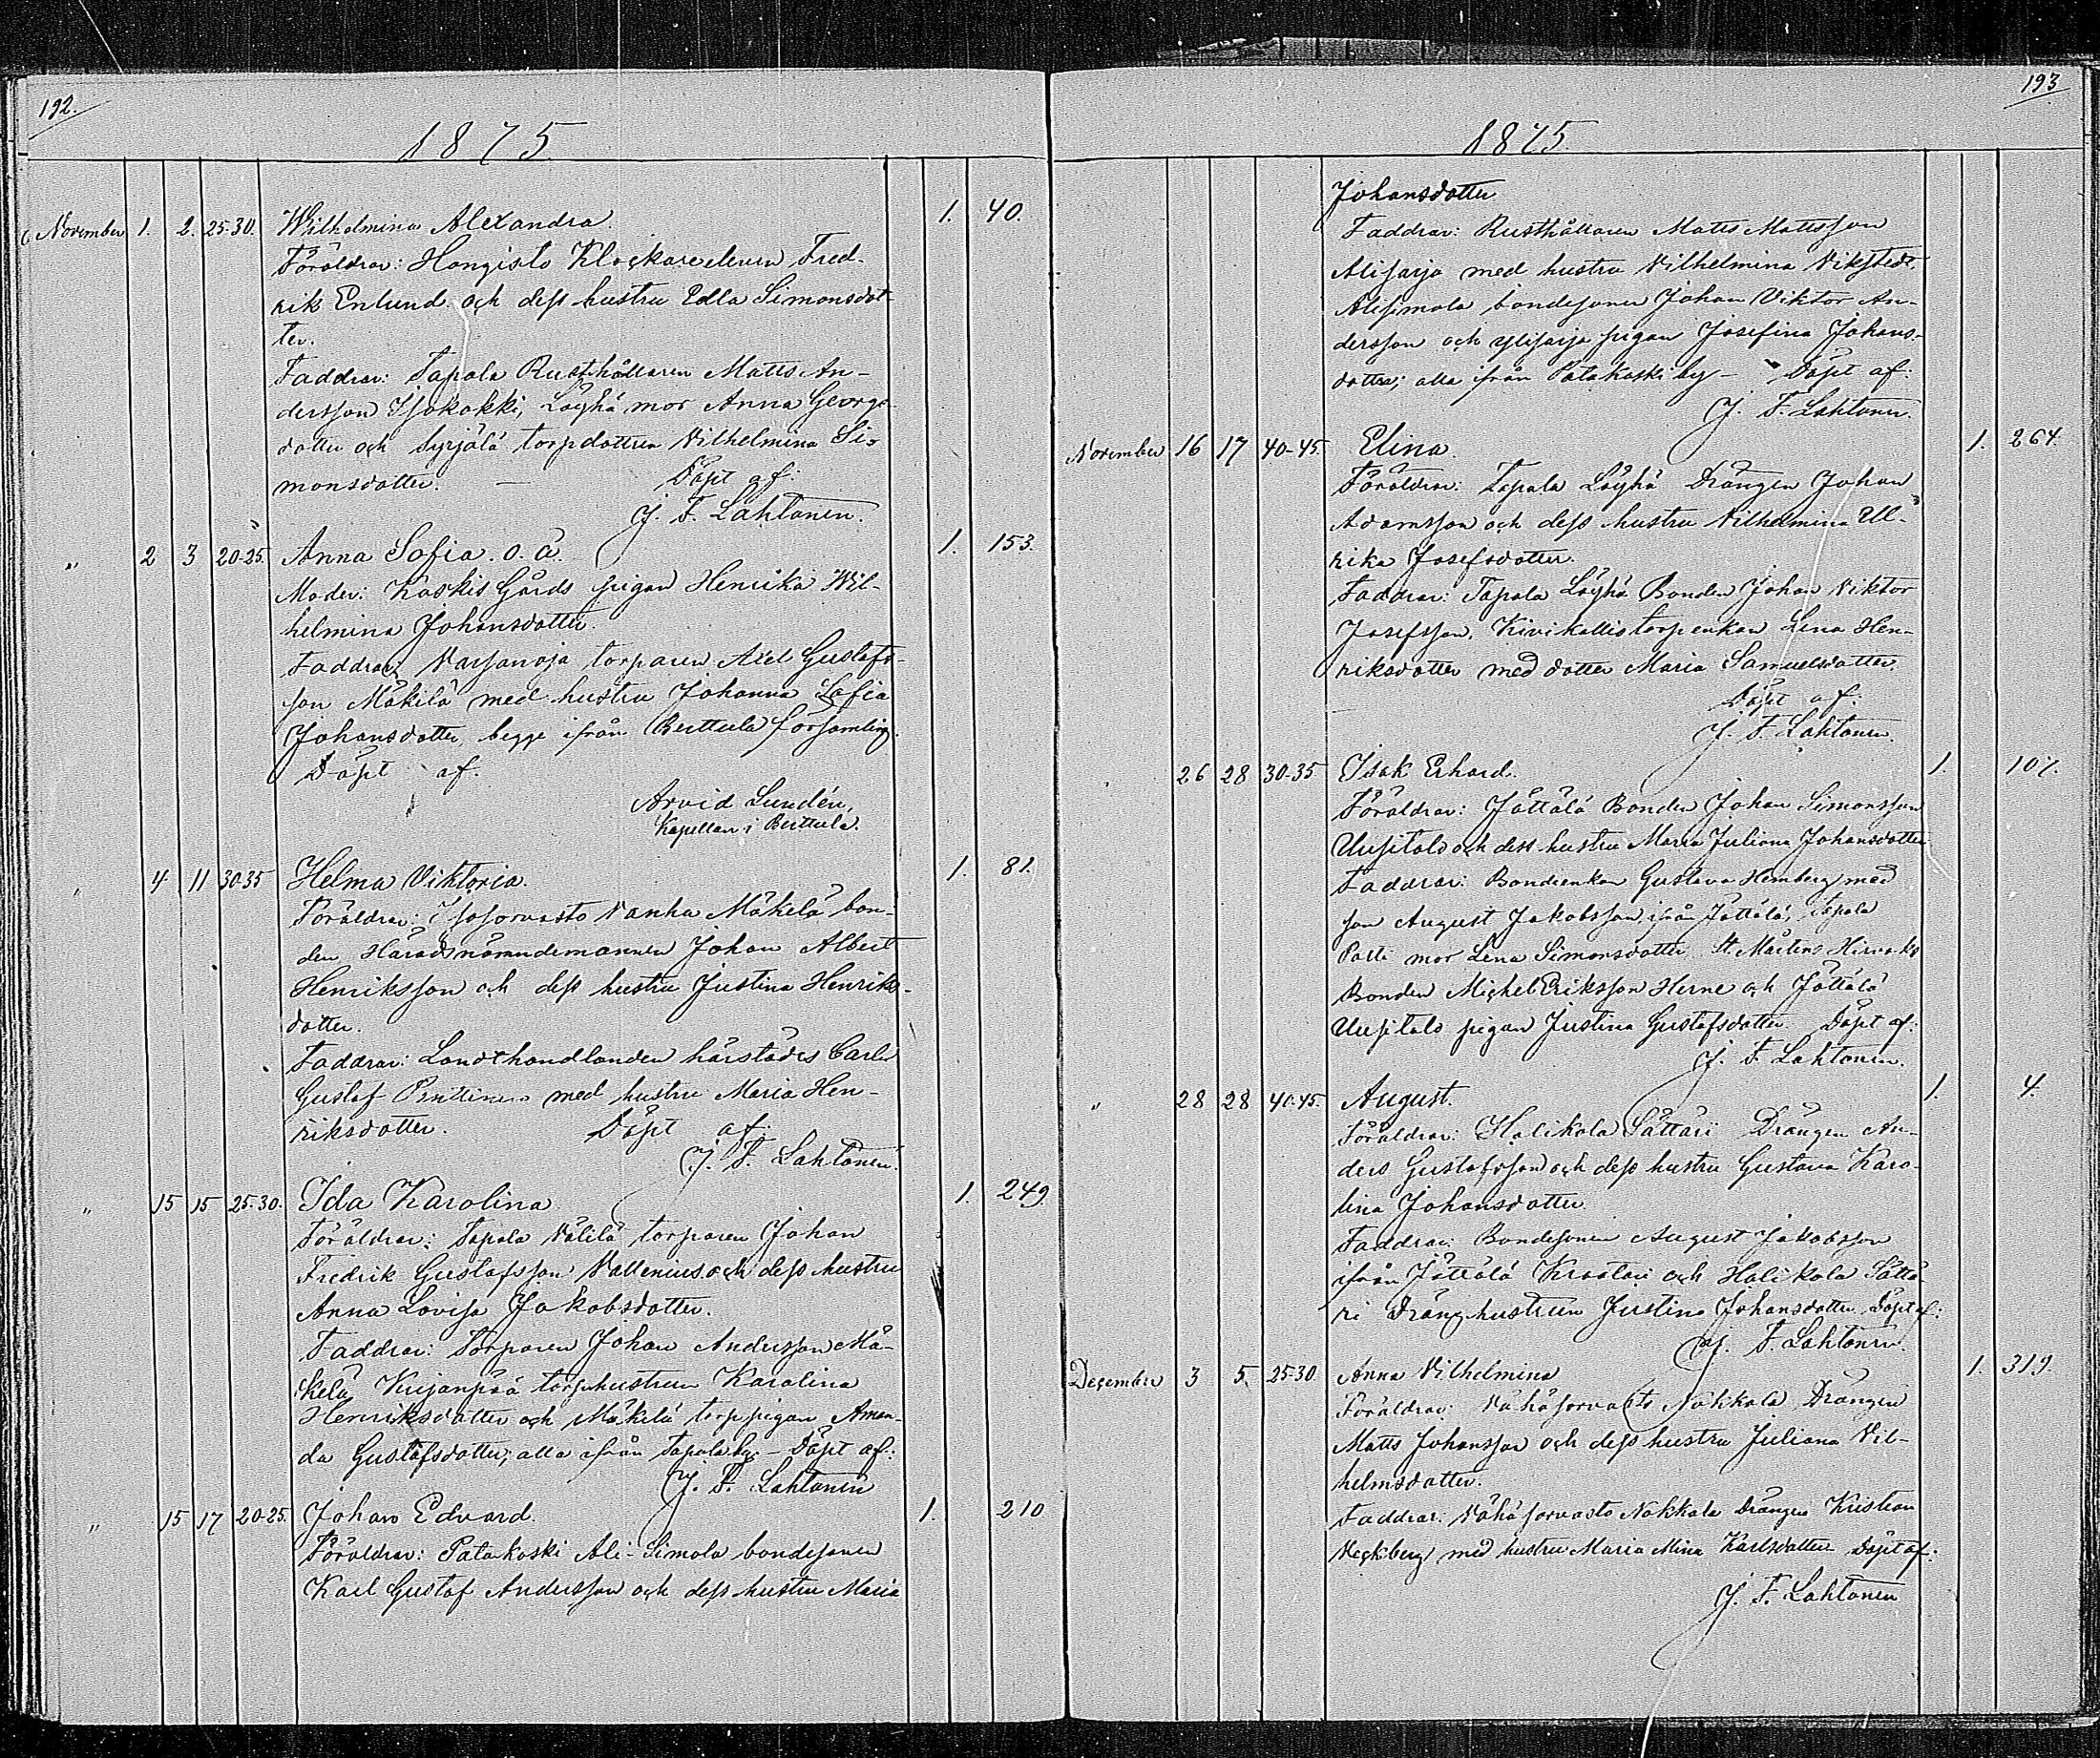 192.
1875
November 1. 2. 25-30. Wilhelmina Alexandra. 1. 40.
Föräldrar: Hongisto Klockareeleven Fred-
rik Enlund och dess hustru Edla Simonsdot-
ter.
Faddrar: Tapala Rusthållaren Matts An-
dersson Isokokki, Löyhä mor Anna Georgs-
dotter och Syrjälä torpdottren Vilhelmina Si-
monsdotter. — Döpt af:
J. F. Lahtonen.
" 2 3 20-25. Anna Sofia. o. ä. 1. 153.
Moder: Koskis Gårds pigan Henrika Wil-
helmina Johansdotter.
Faddrar: Varsanoja torparen Axel Gustafs-
son Mäkilä med hustru Johanna Sofia
Johansdotter, begge ifrån Buttula församling.
Döpt af.
Arvid Lundén,
Kapellan i Buttula.
" 4 11 30-35 Helma Viktoria. 1. 81.
Föräldrar: Isosorvasto Vanha Mäkelä bon-
den Häradsnämndemannen Johan Albert
Henriksson och dess hustru Justina Henriks-
dotter.
Faddrar: Landthandlanden härstädes Carl
Gustaf med hustru Maria Hen-
riksdotter. Döpt af:
J. F. Lahtonen.
" 15 15 25-30. Ida Karolina 1. 249.
Föräldrar: Tapala Välilä torparen Johan
Fredrik Gustafsson Vallenius och dess hustru
Anna Lovisa Jakobsdotter.
Faddrar: Torparen Johan Andersson Mä-
kelä, Kujanpää torphustrun Karolina
Henriksdotter och Mäkelä torppigan Aman-
da Gustafsdotter; alla ifrån Tapala by. – Döpt af:
J. F. Lahtonen
" 15 17 20-25. Johan Edvard. 1. 210
Föräldrar: Patakoski Ali-Simola bondesonen
Karl Gustaf Andersson och dess hustru Maria
193
1875
Johansdotter
Faddrar: Rusthållaren Matts Mattsson
Alisarja med hustru Vilhelmina Vikstedt,
Alisimola bondesonen Johan Viktor An-
dersson och Ylisarja pigan Josefina Johans-
dotter; alla ifrån Patakoski by – Döpt af:
J. F. Lahtonen.
November 16 17 40-45. Elina. 1. 264.
Föräldrar: Tapala Löyhä Drängen Johan
Adamsson och dess hustru Vilhelmina Ul-
rika Josefsdotter.
Faddrar: Tapala Löyhä Bonden Johan Viktor
Josefsson, Kivikallio torpenkan Lena Hen-
riksdotter med dotter Maria Samuelsdotter.
Döpt af:
J. F. Lahtonen.
26 28 30-35 Isak Erhard. 1. 107.
Föräldrar: Jättälä Bonden Johan Simonsson
Uusitalo och dess hustru Maria Juliana Johansdotter
Faddrar: Bondeenkan Gustava Hemberg med
son August Jakobsson ifrån Jättälä, Tapala
Parti mor Lena Simonsdotter, St. Mårtens
Bonden Michel Eriksson Herne och Jättälä
Uusitalo pigan Justina Gustafsdotter. Döpt af:
J. F. Lahtonen.
" 28 28 40-45. August. 1. 4.
Föräldrar: Halikola Sättäri Drängen An-
ders Gustafsson och dess hustru Gustava Karo-
lina Johansdotter.
Faddrar: Bondesonen August Jakobsson
ifrån Jättälä och Halikola Sättä-
ri Dränghustrun Justina Johansdotter. Döpt af:
J. F. Lahtonen.
December 3 5. 25-30 Anna Vilhelmina 1. 319.
Föräldrar: Vähäsorvasto Nokkala Drängen
Matts Johansson och dess hustru Juliana Vil-
helmsdotter.
Faddrar: Vähäsorvasto Nokkala Drängen Kristian
med hustru Maria Mina Karlsdotter. Döpt af:
J. F. Lahtonen